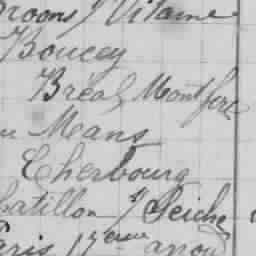 Broons / Vilaine
Boucey
Bréal s/ Montfort
au Mans
Cherbourg
Chatillon s/ Seiche
Paris 17eme arrond